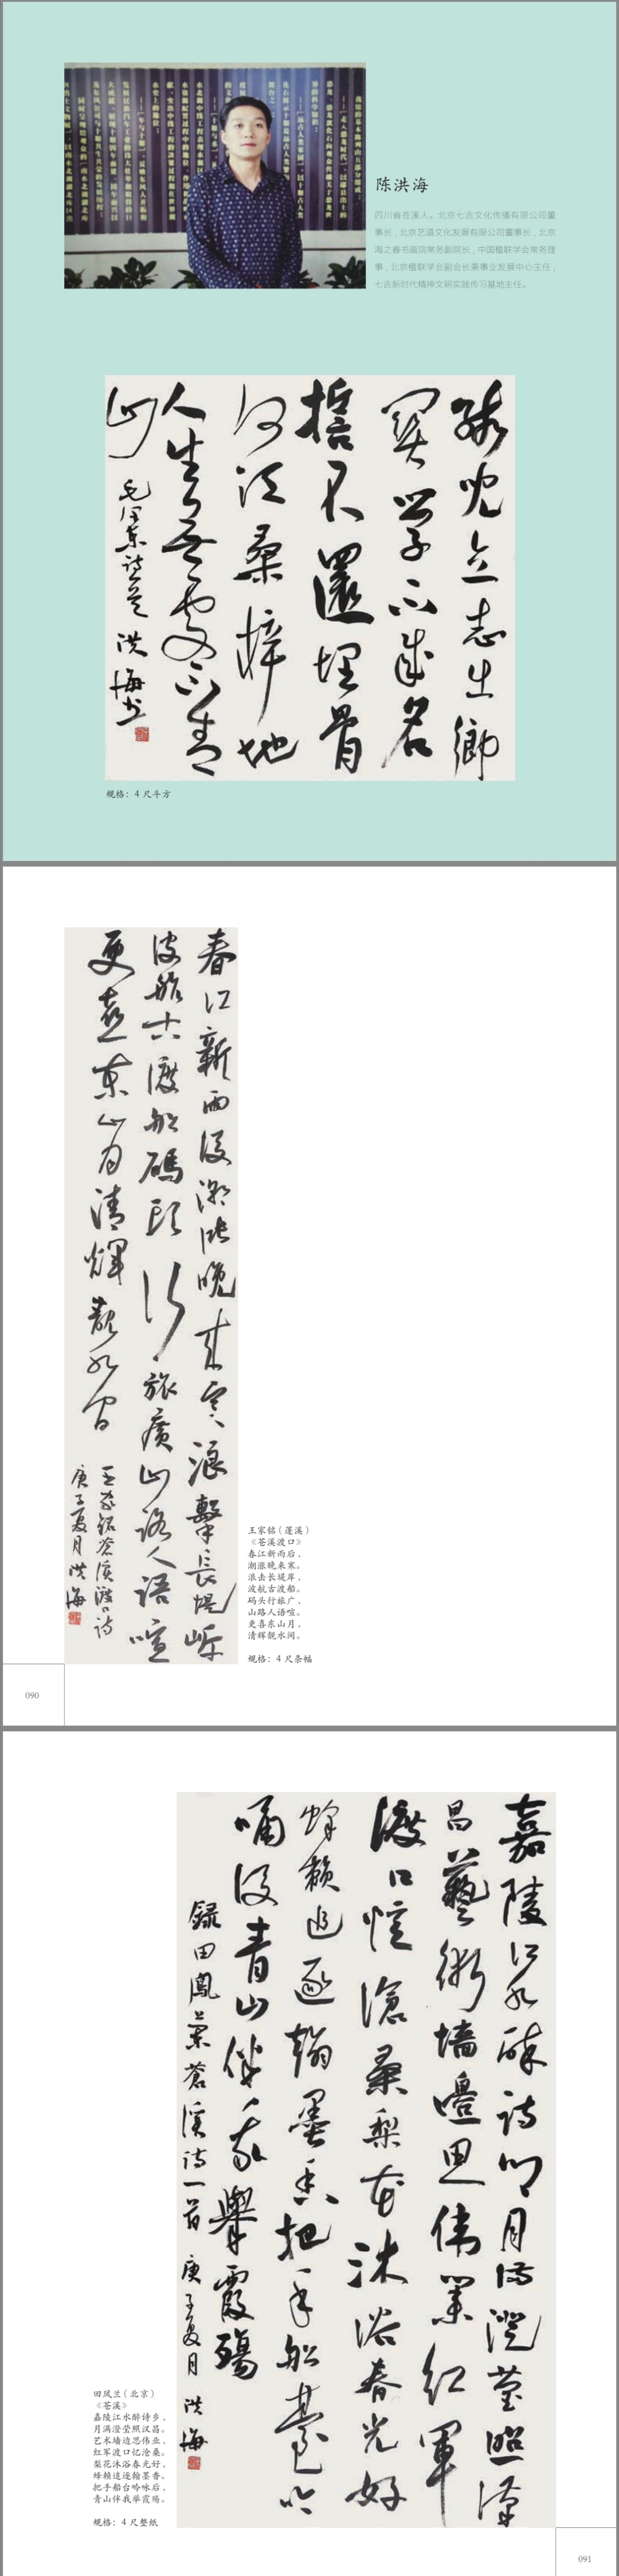 陈洪海
四川省苍溪人。北京七吉文化传播有限公司董
事长，北京艺道文化发展有限公司董事长，北京
海之春书画院常务副院长，中国楹联学会常务理
事，北京楹联学会副会长兼事业发展中心主任，
七吉新时代精神文明实践传习基地主任。
孩兒立志出鄉
關學不成名
誓不還埋骨
何須桑梓地
人生無處不青
山
毛澤東詩 洪海书
规格：4 尺斗方
春江新雨後潮漲晚来寒浪擊長堤岸
波航古渡船碼頭行旅廣山路人語喧
更喜東山月清輝靚水間
王家銘蒼溪渡口詩
庚子夏月洪海
王家铭（蓬溪）
《苍溪渡口》
春江新雨后，
潮涨晚来寒。
浪击长堤岸，
波航古渡船。
码头行旅广，
山路人语喧。
更喜东山月，
清辉靓水间。
规格：4 尺条幅
090
嘉陵江水醉詩鄉月满澄莹照漢
昌藝術墙邊思偉業紅軍
渡口憶滄桑梨花沐浴春光好
蜂賴追逐翰墨香把手船臺吟
咏後青山伴我舉霞殤
録田鳳蘭蒼溪詩一首 庚子夏月 洪海
田凤兰（北京）
《苍溪》
嘉陵江水醉诗乡，
月满澄莹照汉昌。
艺术墙边思伟业，
红军渡口忆沧桑。
梨花沐浴春光好，
蜂赖追逐翰墨香。
把手船台吟咏后，
青山伴我举霞殇。
规格：4 尺整纸
091